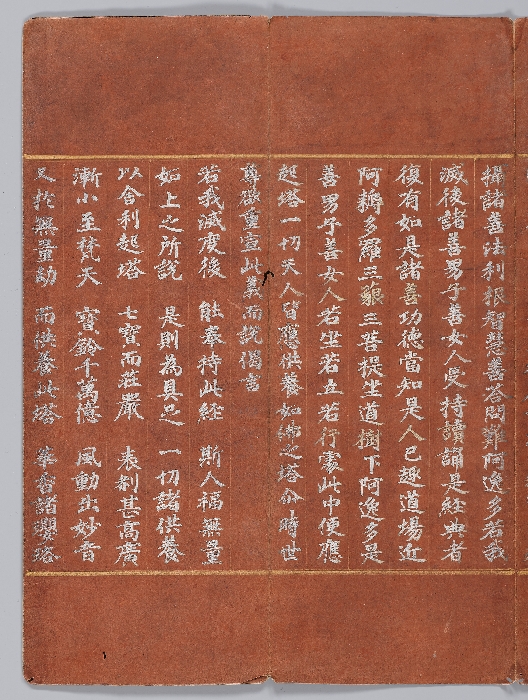 攝諸善法利根智慧善荅問難阿逸多若我
滅後諸善男子善女人受持讀誦是経典者
復有如是諸善功德當知是人已趣道場近
阿耨多羅三藐三菩提坐道樹下阿逸多是
善男子善女人若坐若立若行處此中便應
起塔一切天人皆應供養如佛之塔尒時世
尊欲重宣此義而說偈言
若我滅度後 能奉持此経 斯人福無量
如上之所說 是則為具足 一切諸供養
以舍利起塔 七寶而莊嚴 表刹甚高廣
漸小至梵天 寶鈴千萬億 風動出妙音
又於無量劫 而供養此塔 華香諸瓔珞